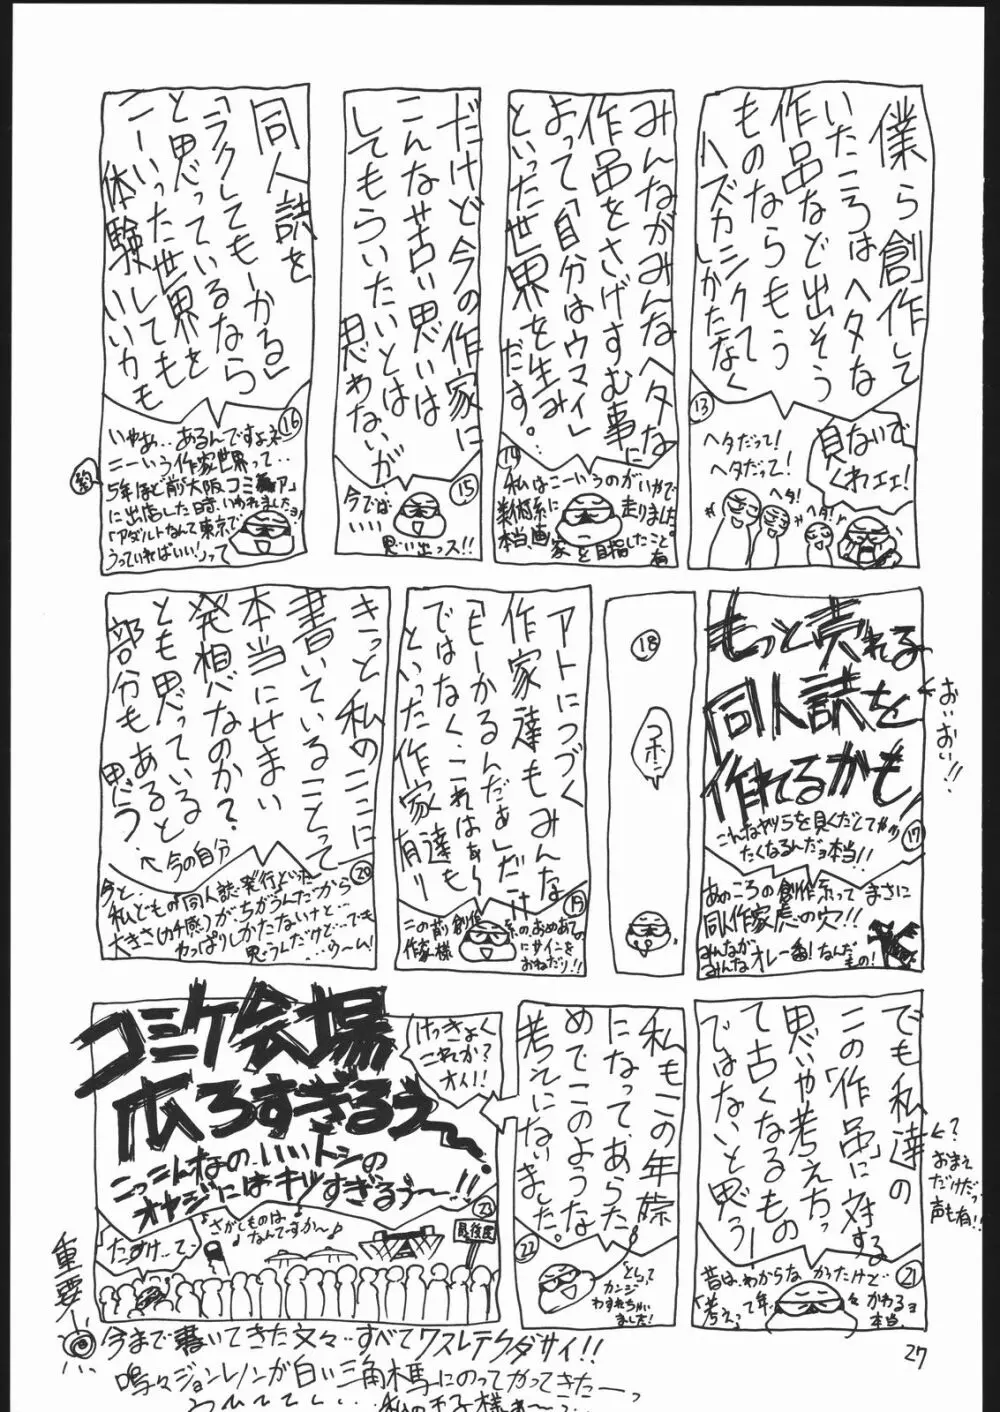 僕ら創作して
いたころはヘタな
作品など出そう
ものならもう
ハズカシクて
しかたなく
13
ヘタだって！
ヘタだって！
ヘタ！
ヘタ！
見ないで
くれェェ！
みんながみんなヘタな
作品をさげすむ事に
よって「自分はウマイ」
といった世界を生み
だす。
14
私はこーいうのがいやで
美術系に走りました
本当、画家を目指したこと。
有
だけど今の作家に
こんな苦しい思いは
してもらいたいとは
思わないが
15
今では
いい
思い出っス!!
同人誌を
「ラクしてもーかる」
と思っているなら
こーいった世界を
体験しても
いいカモ
16
いやぁ…あるんですよネ
こーいう作家世界って…
5年ほど前「大阪コミ ア」
に出店した時、いわれましたョ
「アダルトなんて東京で
うっていればいい!」って
もっと売れる
同人誌を
作れるカモ！
おいおい!!
17
こんなヤツらを見くだしてやり
たくなるんだョ本当!!
あのころの創作系ってまさに
同人作家虎の穴!!
みんなが
みんなオレ一番！なんだ
もの！
18
コホン
アトにつづく
作家達もみんな
「もーかるんだぁ」だけ
ではなく、これはぁ〜
といった作家達も
有り
19
この前創作系の、おめあての
作家様にサインを
おねだり!!
きっと私のここに
書いていることって
本当にせまい
発想なのか？
とも思っている
部分もあると
思う。
←今の自分
20
今と…
私どもの「同人誌発行といった
大きさ(カチ感)がちがうんだから
やっぱりしかたないけど…でも
思うんだけど…
…ウーム！
でも私達の
この「作品」に対する
思いや考え方っ
て古くなるもの
ではないと思う！
←？
おまえ
だけだっ
声も有!!
21
昔は、わからなかったけど…
「考えって年々かわるョ
本当。
私もこの年際
になって、あらた
めでこのような
考えにないました。
22
「とし」って
カンジ
わすれちゃい
ました！
けっきょく
これか？
オイ!!
コミケ会場
広ろすぎるぅ〜
こっこんなの、いいトシの
オヤジにはキツすぎるぅ〜!!
23
♪さがしものは
なんですか〜♪
最後尾
たすけ…て…
重要！
今まで書いてきた文々…すべてワスレテクダサイ!!
嗚々ジョンレノンが白い三角木馬にのってやってきたーっ
…私の王子様ぁ〜っ…
27